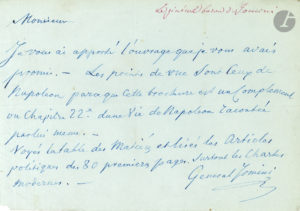 Le général baron de Jomini
ader
Monsieur
Je vous ai apporté l'ouvrage que je vous avais
promis. — Les points de vue sont ceux de
Napoléon parce que cette brochure est un Complement
au Chapitre 22e d'une Vie de Napoléon racontée
par lui meme. —
Voyés la table des Matières et lisés les Articles
politiques des 80 premieres pages. Surtout les Chartes
modernes. —
General Jomini